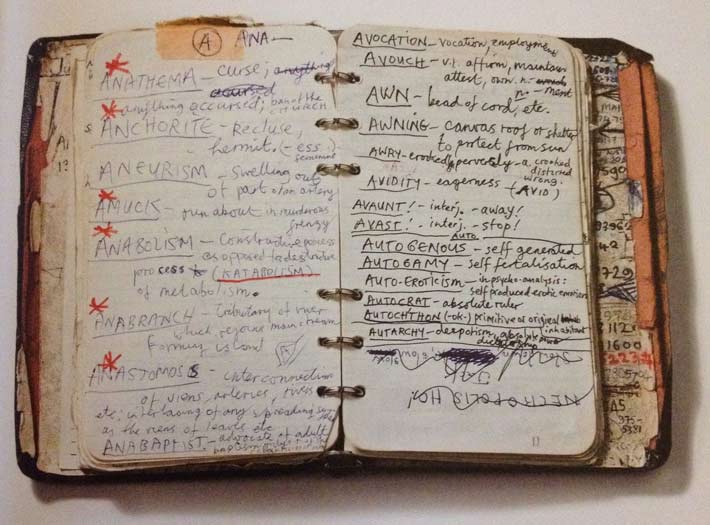 A ANA—
ANATHEMA — curse; anything
accursed
anything accursed; ban of the CHURCH
ANCHORITE — Recluse,
hermit. (-ess) feminine
ANEURISM — swelling out
of part of an artery
AMUCK — run about in murderous
frenzy
ANABOLISM — Constructive process
as opposed to destructive
process (KATABOLISM)
of metabolism.
ANABRANCH — tributary of river
which rejoins main stream
forming island
ANASTOMOSIS — interconnection
of viens, arteries, rivers
etc; interlacing of any spreading
as the viens of leaves etc
ANABAPTIST — advocate of adult
baptism
AVOCATION — vocation, employment
AVOUCH — v.t. affirm, maintain
attest, own. n.
n. - ment
AWN — bead of cord, etc.
AWNING — canvas roof or shelter
to protect from sun
AWRY — crookedly, perversely — a. crooked
distorted
wrong.
AVIDITY — eagerness (AVID)
AVAUNT! — interj. — away!
AVAST! — interj. — stop!
AUTO
AUTOGENOUS — self generated
AUTOGAMY — self fertalisation
AUTO-EROTICISM — in psycho-analysis:
self produced erotic emotion
AUTOCRAT — absolute ruler
AUTOCHTHON (-ok-) primitive or original inhabitant
AUTARCHY — despotism, absolute power
dictatorship
NECROPOLIS
11